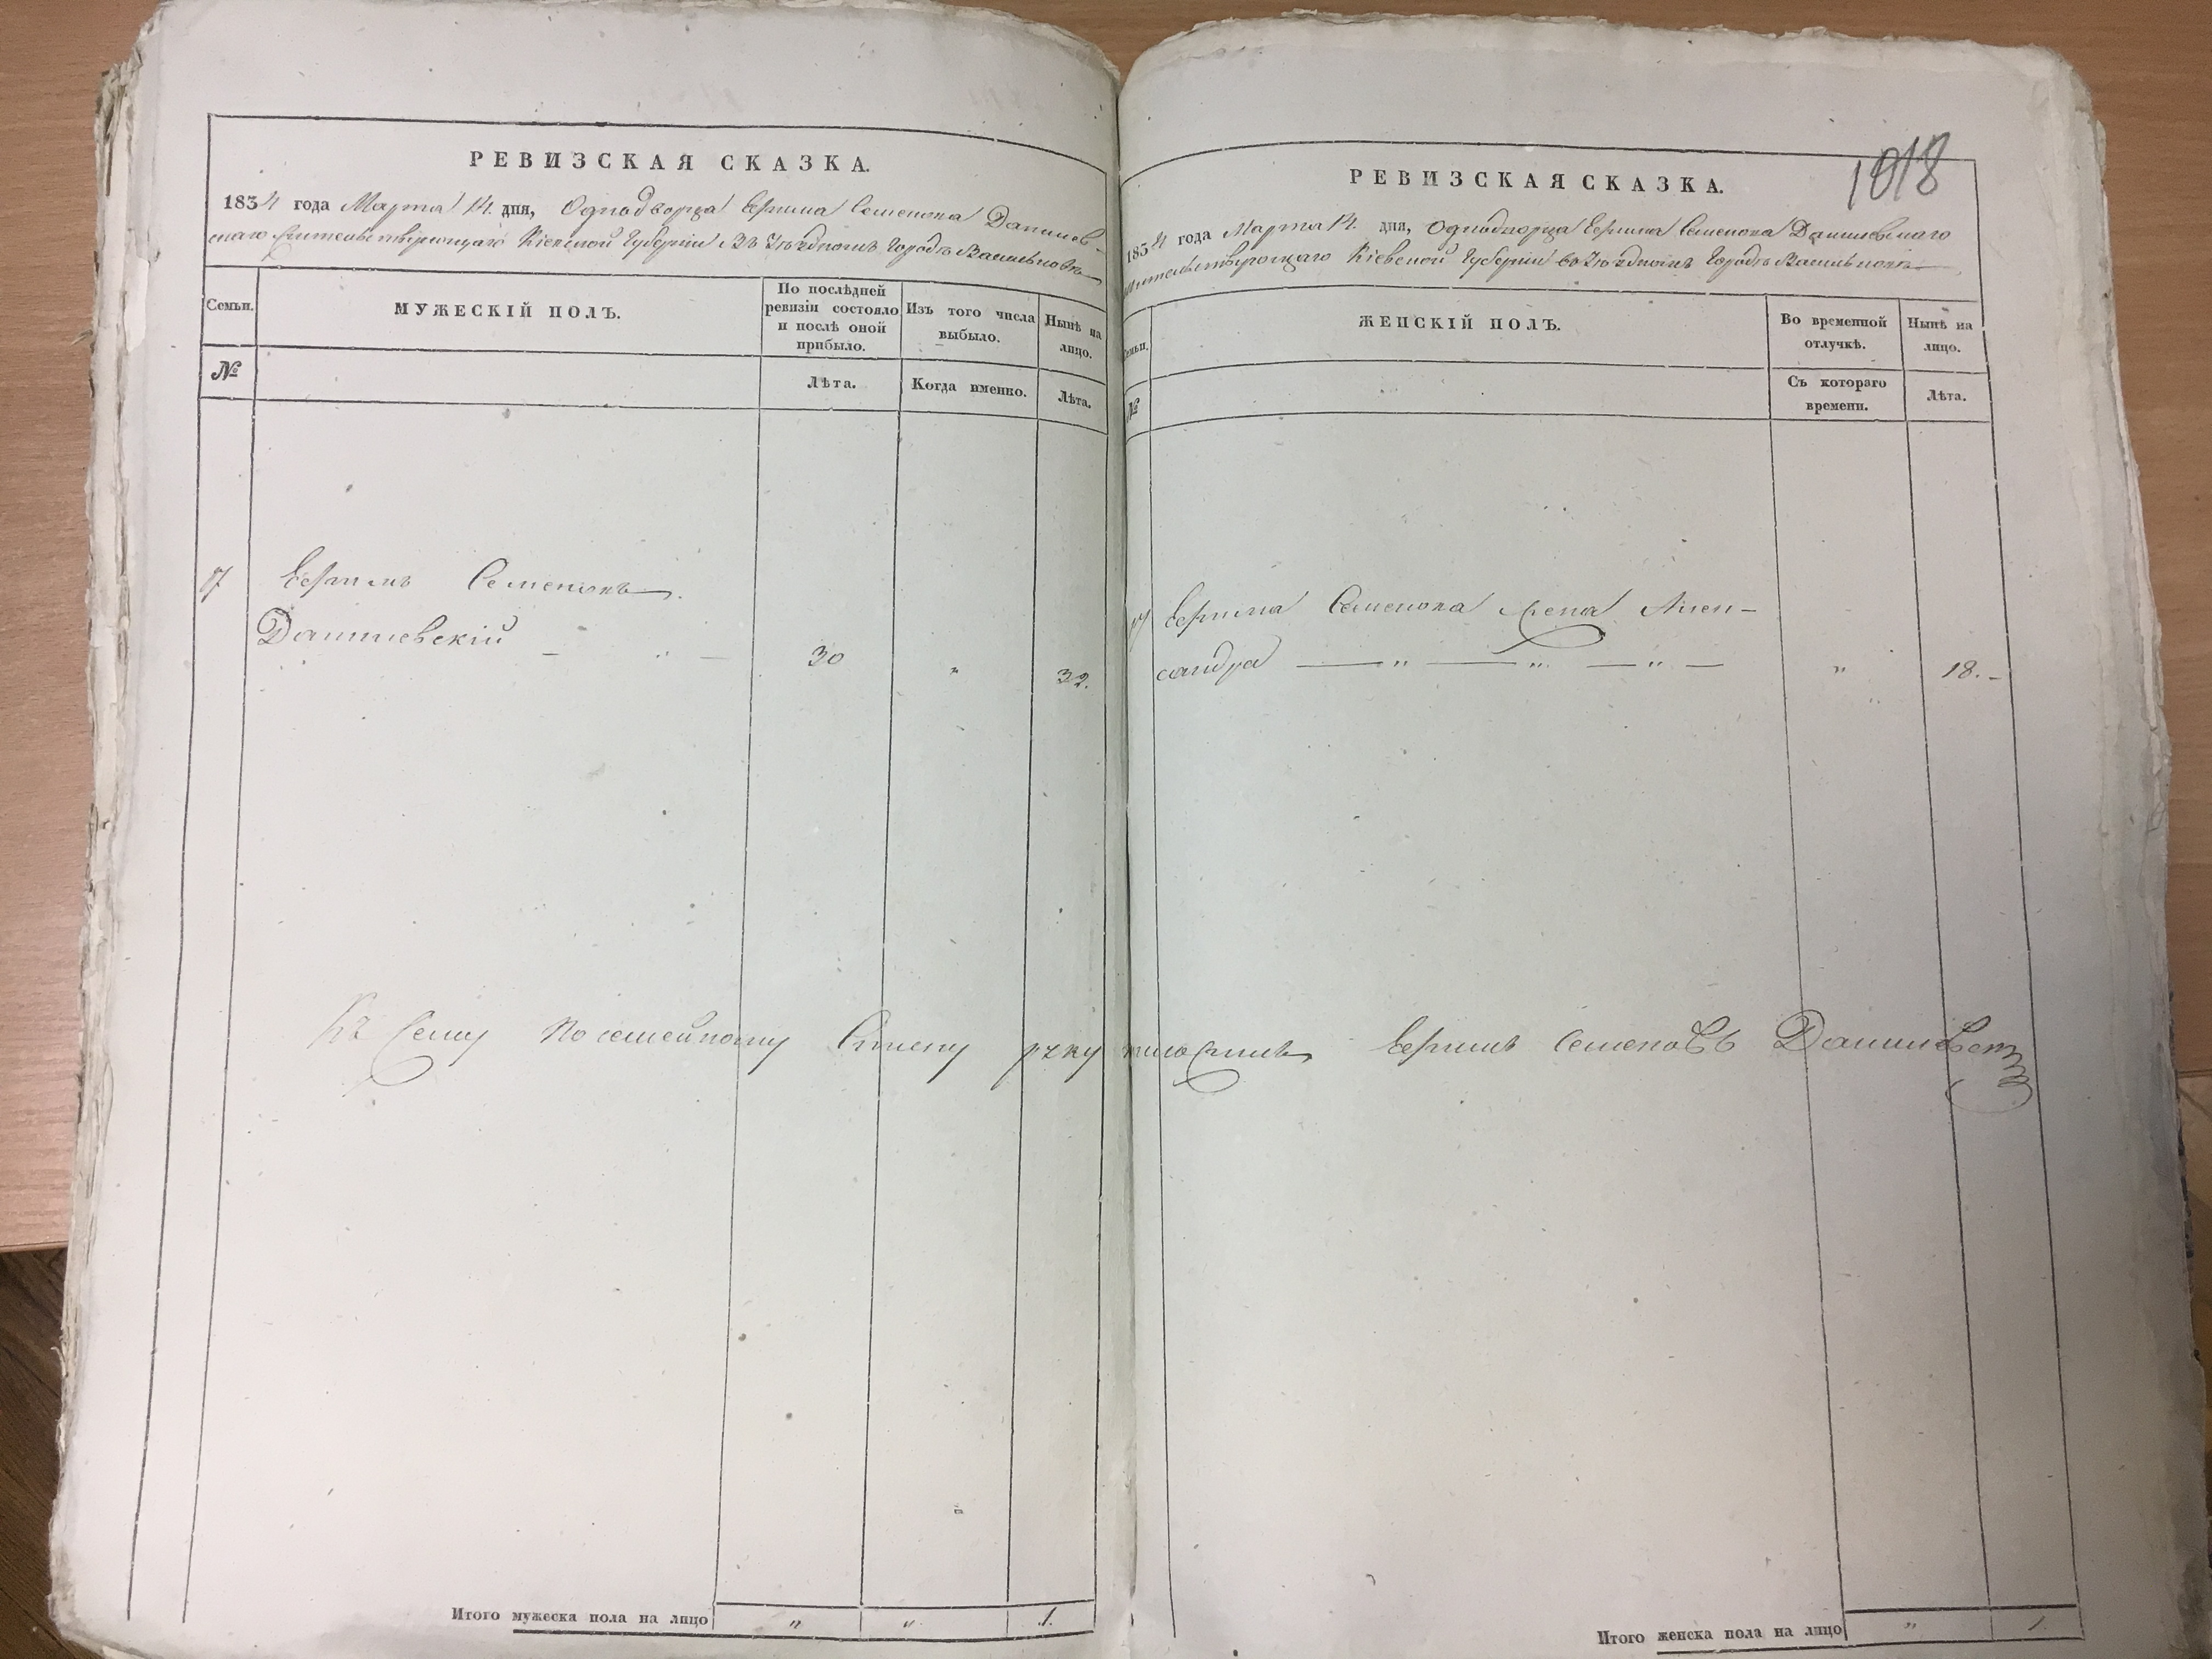 РЕВИЗСКАЯ СКАЗКА.
1834 года Марта 14. дня, Однодворца Ефима Семенова Данилев-
скаго жительствующаго Кіевской Губерніи Въ Уѣздномъ Городѣ Васильковѣ
Семьи.
МУЖЕСКІЙ ПОЛЪ.
По послѣдней
ревизіи состояло
и послѣ оной
прибыло.
Изъ того числа
выбыло.
Нынѣ на
лицо.
№
Лѣта.
Когда именно.
Лѣта.
Ефимъ Семеновъ
Данилевскій — „ —
30
„
32.
Къ Сему Посемейному Списку руку приложилъ Ефимъ Семеновъ Данилевскій
Итого мужеска пола на лицо „ „ 1.
1018
РЕВИЗСКАЯ СКАЗКА.
1834 года Марта 14. дня, Однодворца Ефима Семенова Данилевскаго
жительствующаго Кіевской Губерніи во Уѣздномъ Городѣ Васильковѣ
Семьи.
ЖЕНСКІЙ ПОЛЪ.
Во временной
отлучкѣ.
Нынѣ на
лицо.
№
Съ котораго
времени.
Лѣта.
Ефима Семенова жена Алек-
сандра — „ — „ — „ —
„
18. -
Итого женска пола на лицо „ 1.